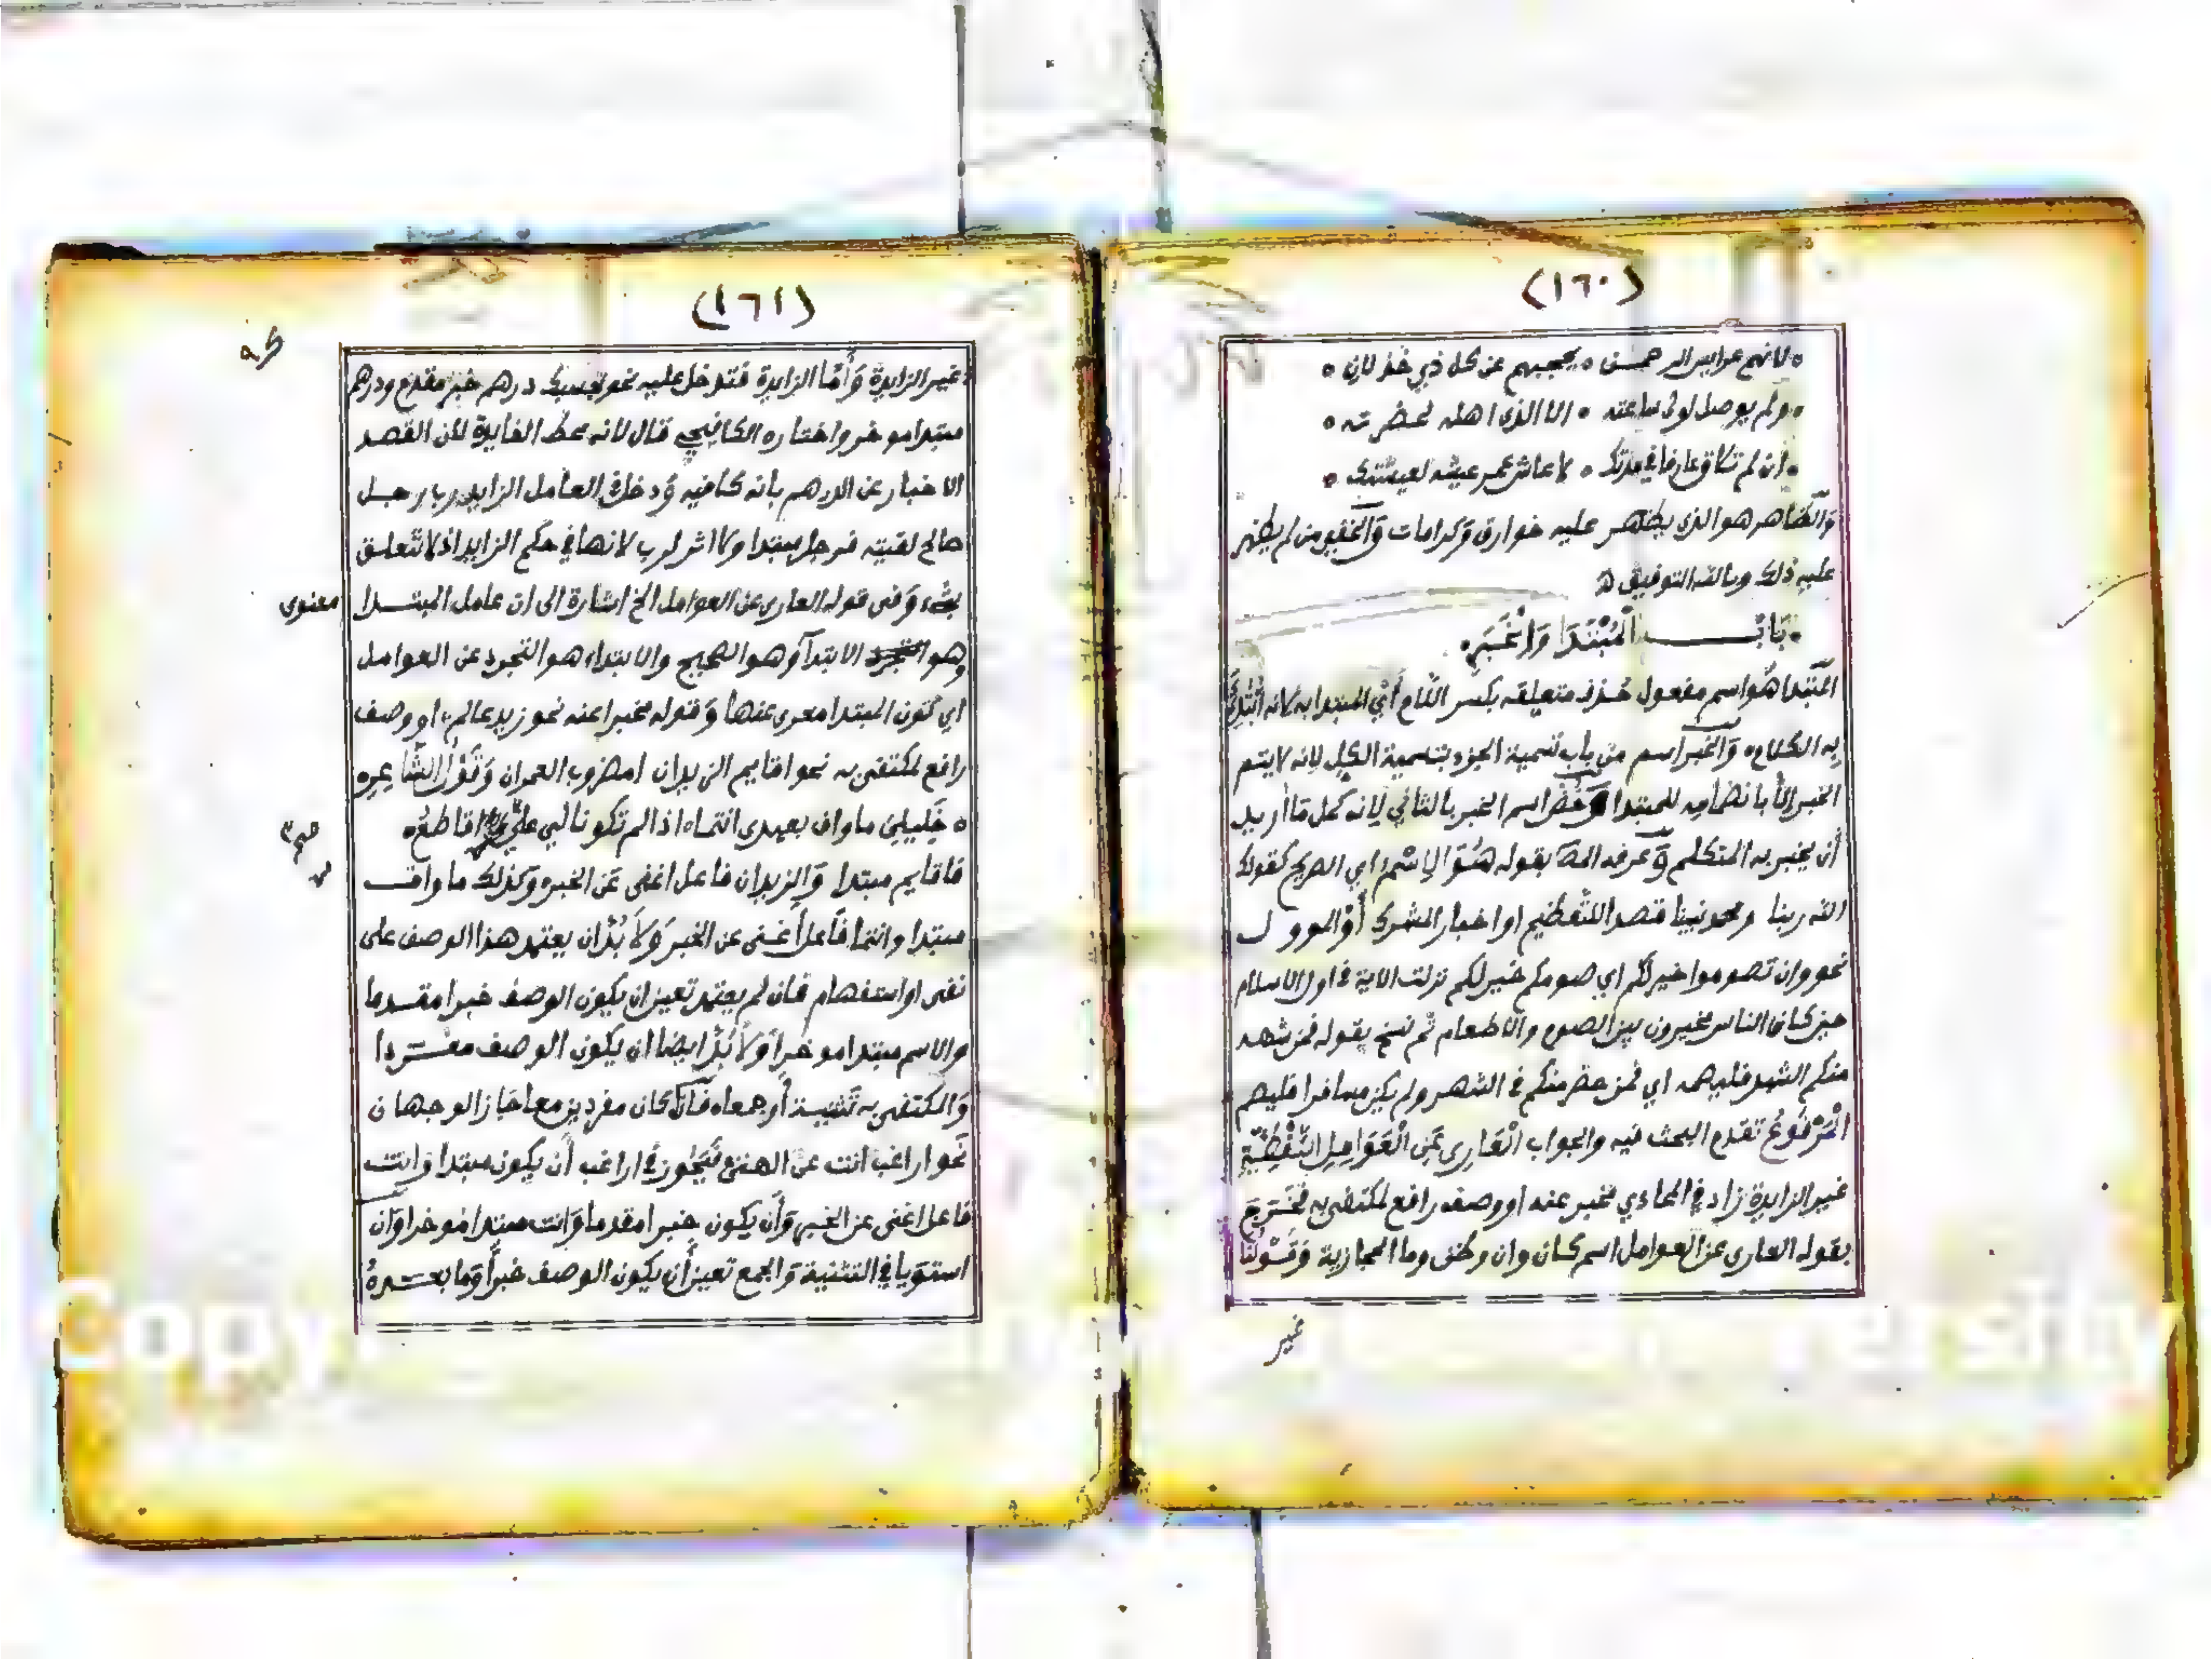 (١٦٠)
لانهم عرايس الرحمن ۰ يحجبهم عن كل ذي خذلان ۰
ولم يوصل لولي ساعته ۰ الا الذي اهله لحضرته ۰
ان لم تلاق عارفا في مدتك ۰ لا عاش عمر عيشه لعيشتك ۰
والظاهر هو الذي يظهر عليه خوارق وكرامات والخفي من لم يظهر
عليه ذلك وبالله التوفيق
باب المُبْتَدَا وَالْخَبَرِ
المبتدا هو اسم مفعول حذف متعلقه بكسر اللام أي المبتدا به لانه ابتدئ
به الكلام والخبر اسم من باب تسمية الجزء بتسمية الكل لانه لا يتم
الخبر الا بانضمامه للمبتدا وخص اسم الخبر بالثاني لانه كمل ما أريد
أن يخبر به المتكلم وعرفه المص بقوله هُوَ الإِسْمُ اي الصريح كقولك
الله ربنا ومحمد نبينا قصدا للتعظيم او اخبار المشرك أَوْ الموول
نحو وان تصوموا خير لكم اي صومكم خير لكم نزلت الاية في اول الاسلام
حين كان الناس مخيرون بين الصوم والاطعام ثم نسخ بقوله فمن شهد
منكم الشهر فليصمه اي فمن حضر منكم في الشهر ولم يكن مسافرا فليصم
الْمَرْفُوعُ تقدم البحث فيه والجواب الْعَارِى عَنِ الْعَوَامِلِ اللَّفْظِيَّةِ
غير الزايدة زاد في المحاذي مخبر عنه او وصف رافع لمكتفى به فخرج
بقوله العاري عن العوامل اسم كان وان وظن وما الحجازية وقولنا
غير
(١٦١)
غير الزايدة وأما الزايدة فتدخل عليه نحو بحسبك درهم خبر مقدم ودرهم
مبتدا موخر واختاره الكافيجي قال لانه محط الفايدة لان القصد
الاخبار عن الدرهم بانه كافيه ودخل العامل الزايد رب رجل
صالح لقيته فرجل مبتدا ولا اثر لرب لانها في حكم الزايد اذ لا تتعلق
بشيء وفى قوله العارى عن العوامل الخ اشارة الى ان عامل المبتدا معنوى
وهو الابتدا وهو الصحيح والابتداء هو التجرد عن العوامل
اي كون المبتدا معرى عنها وقوله مخبرا عنه نحو زيد عالم او وصف
رافع لمكتفى به نحو اقايم الزيدان امضروب العمران وقول الشاعر
خَليليَّ ما واف بعهدى انتما ۰ اذا لم تكونا لي على من اقاطع
فاقايم مبتدا والزيدان فاعل اغنى عن الخبر وكذلك ما واف
مبتدا وانتما فاعل أغنى عن الخبر ولا بُدَّ ان يعتمد هذا الوصف على
نفى او استفهام فان لم يعتمد تعين ان يكون الوصف خبرا مقدما
والاسم مبتدا موخرا ولا بُدَّ ايضا ان يكون الوصف مفردا
والمكتفى به تثنية أو جمعا فان كان مفردين معا جاز الوجهان
نحو اراغب انت عن الهتى فيجوز في اراغب أن يكون مبتدا وانت
فاعل اغنى عن الخبر وأن يكون خبرا مقدما وانت مبتدا موخرا وان
استويا في التثنية والجمع تعين أن يكون الوصف خبرا وما بعده